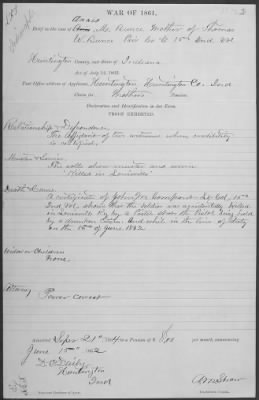 WAR OF 1861.
Brief in the case of Annis Mc Bunce Mother of Thomas
W. Bunce Priv Co 15th Ind Vol
Huntington County, and State of Indiana
Act of July 14, 1862.
Post Office address of Applicant, Huntington, Huntington Co. Ind
Claim for Mother's Pension.
Declaration and Identification in due Form.
PROOF EXHIBITED.
Relationship & Dependence
The affidavit of two witnesses whose credibility
is certified.
Muster & Service
The rolls show muster and service
"Killed in Louisville"
Death & Cause
A certificate of Lt Col. 15th
Ind. Vol. shows that the soldier was accidentally killed
in Louisville Ky by a Pistol shot the Pistol being held
by a drunken Citizen. And while in the line of duty
on the 15th of June 1862
Widow or Children
None.
Attorney
Power correct
Admitted Sept 21st to a Pension of $8.00 per month, commencing
June 15th 1862
Huntington
Ind